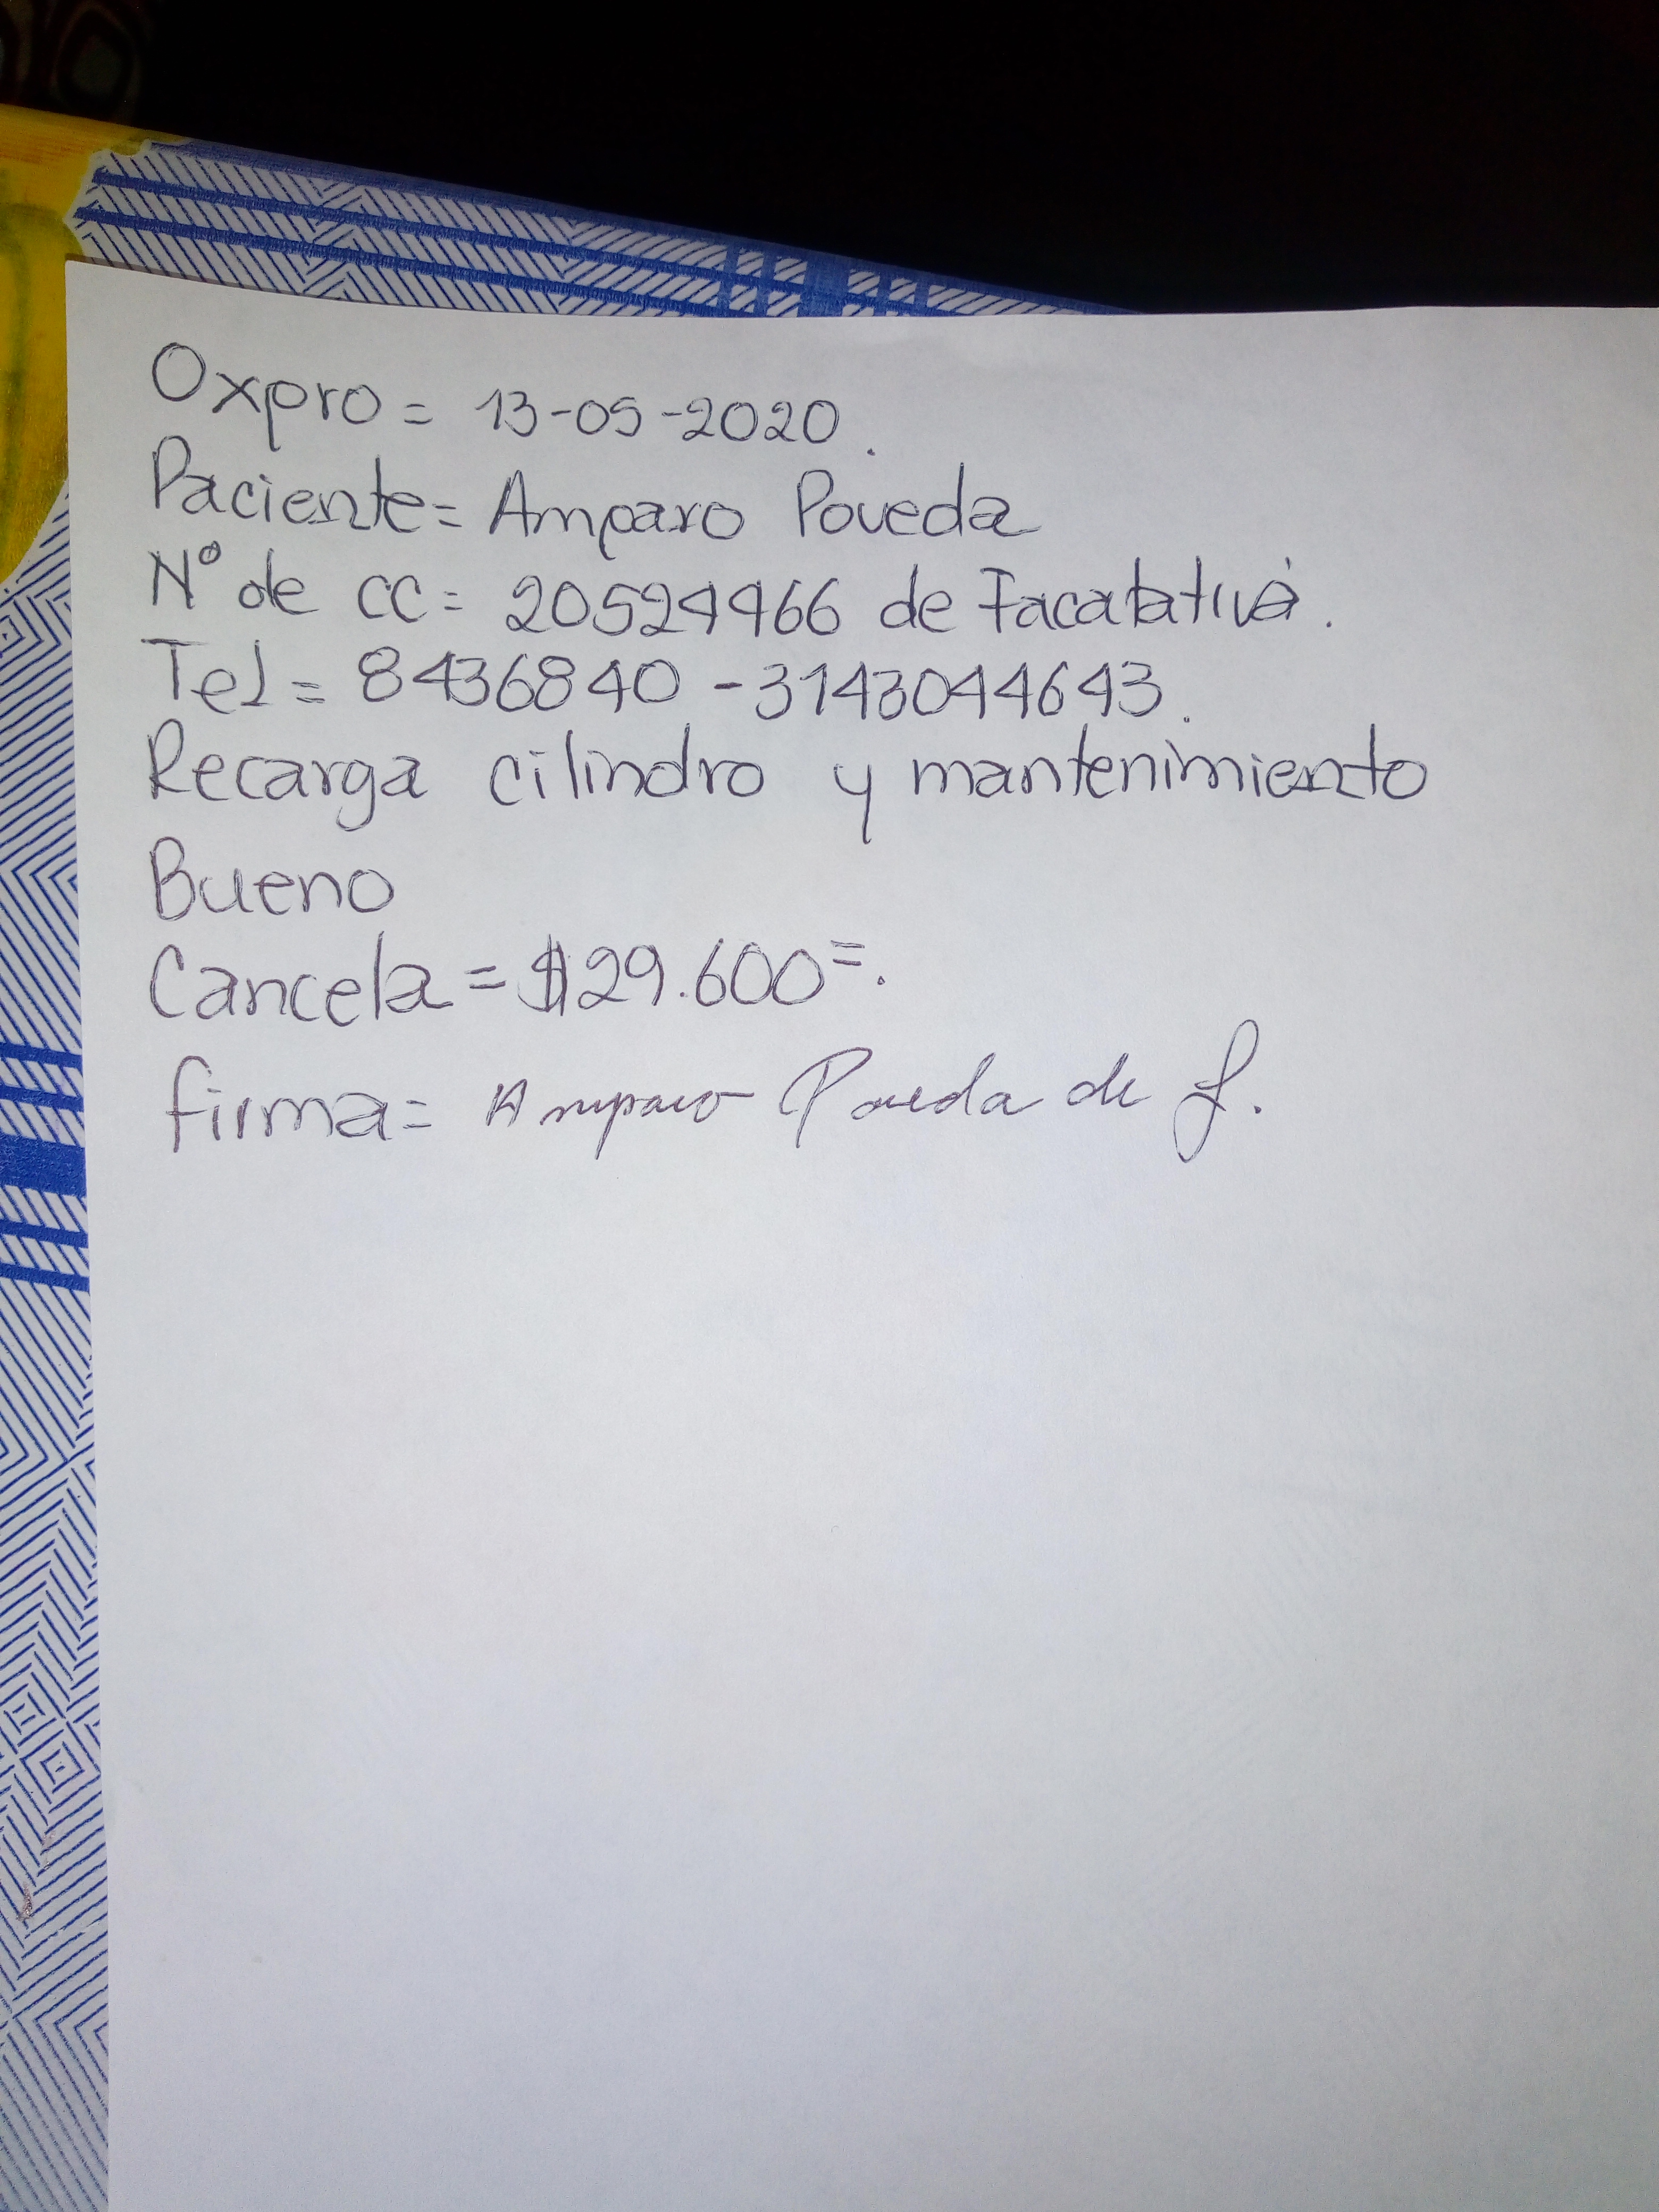 Oxpro = 13-05-2020.
Paciente = Amparo Poveda
N° de CC = 20524466 de Facatativá.
Tel = 8436840 - 3143044643.
Recarga cilindro y mantenimiento
Bueno
Cancela = $29.600=.
firma = Amparo Poveda de f.